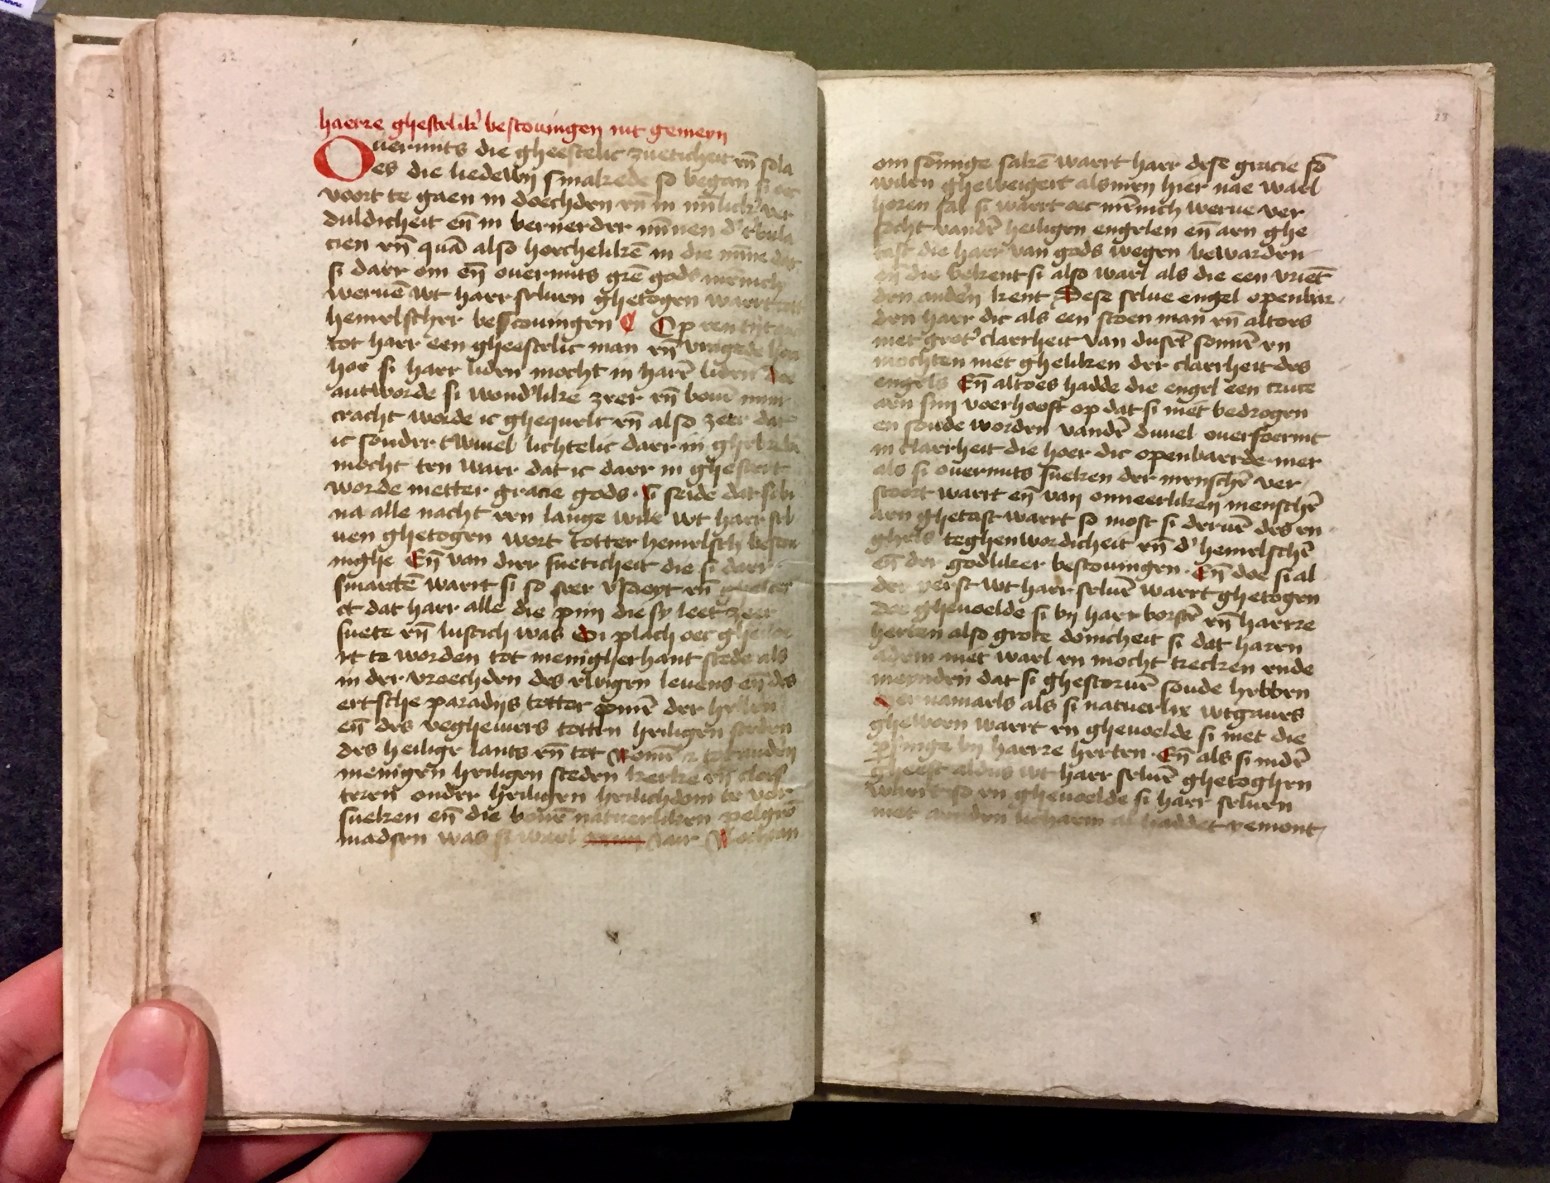 haerre gheestelik' bescouingen int gemeyn
Ouermits die gheestelic zueticheit eñ sola
es die liedewij smakede so began si oec
voort te gaen in doechden eñ in ynlick' ver
duldicheit eñ in bernender mīnen d' tribula
cien eñ quā also hoechelikē in die mīne dat
si daer om eñ ouermits grē gods mēnich
weruē wt haer seluen ghetogen waert tot
hemelscher bescouingen Op een tijt
tot haer een gheestelic man eñ vragede hoer
hoe si haer liden mocht in harē liden
antworde si wond'like zeer eñ bouē mijn
cracht werde ic ghequelt eñ also zeer dat
ic sonder twiuel lichtelic daer in ghebreken
mocht ten waer dat ic daer in ghesterct
worde metter gracie gods. si seide dat si bi
na alle nacht een lange wile wt haer sel
uen ghetogen wort totter hemelsch' bescou
inghe Eñ van dier sueticheit die si daer
smaectē waert si so seer
et dat haer alle die pijn die sy leet zeer
suete eñ lustich was Si plach oec
et te worden tot menigherhant stede als
in der vroechden des ewigen leuens eñ des
ertsche paradijs totter pinē der hellen
eñ des veghewers totten heiligen steden
des heilige lants eñ tot Romē
menigen heiligen steden kerke eñ cloes
teren onder heiligen heilichdom te ver
sueken eñ die bouē natuerliken pelgri
madsen was si wael
om sōmige sakē waert haer dese gracie so
wilen gheweigert alsmen hier nae wael
horen sal si waert oec mēnich werue ver
socht vandē heiligen engelen eñ aen ghe
tast die haer van gods wegen bewarden
eñ die bekent si also wael als die een vriēt
den andē kent Dese selue engel openbaer
den haer dic als een scoen man eñ altoes
met grot' claerheit van dusēt sonnē en
mochten niet gheliken der claerheit des
engels Eñ altoes hadde die engel een cruce
aen sijn voerhooft op dat si niet bedrogen
en soude worden vandē duuel ouerfoermt
in claerheit die hoer dic openbaerde mer
als si ouermits sueken der menschē ver
stoort waert eñ van onneerliken menschē
aen ghetast waert so most si deruē des en
ghels teghenwordicheit eñ d' hemelschē
eñ der godliker bescouingen. Eñ doe si al
der yerst wt haer seluē waert ghetogen
doe gheuoelde si bij haer borstē eñ haerre
herten also grote domcheit si dat haren
adem niet wael en mocht trecken ende
meynden dat si ghestoruē soude hebben
Mer namaels als si natuerlix wtganes
gheworn waert en gheuoelde si niet die
p'singe bij haerre herten. Eñ als si indē
gheest aldus wt haer seluē ghetoghen
waert so en gheuoelde si haer seluen
niet